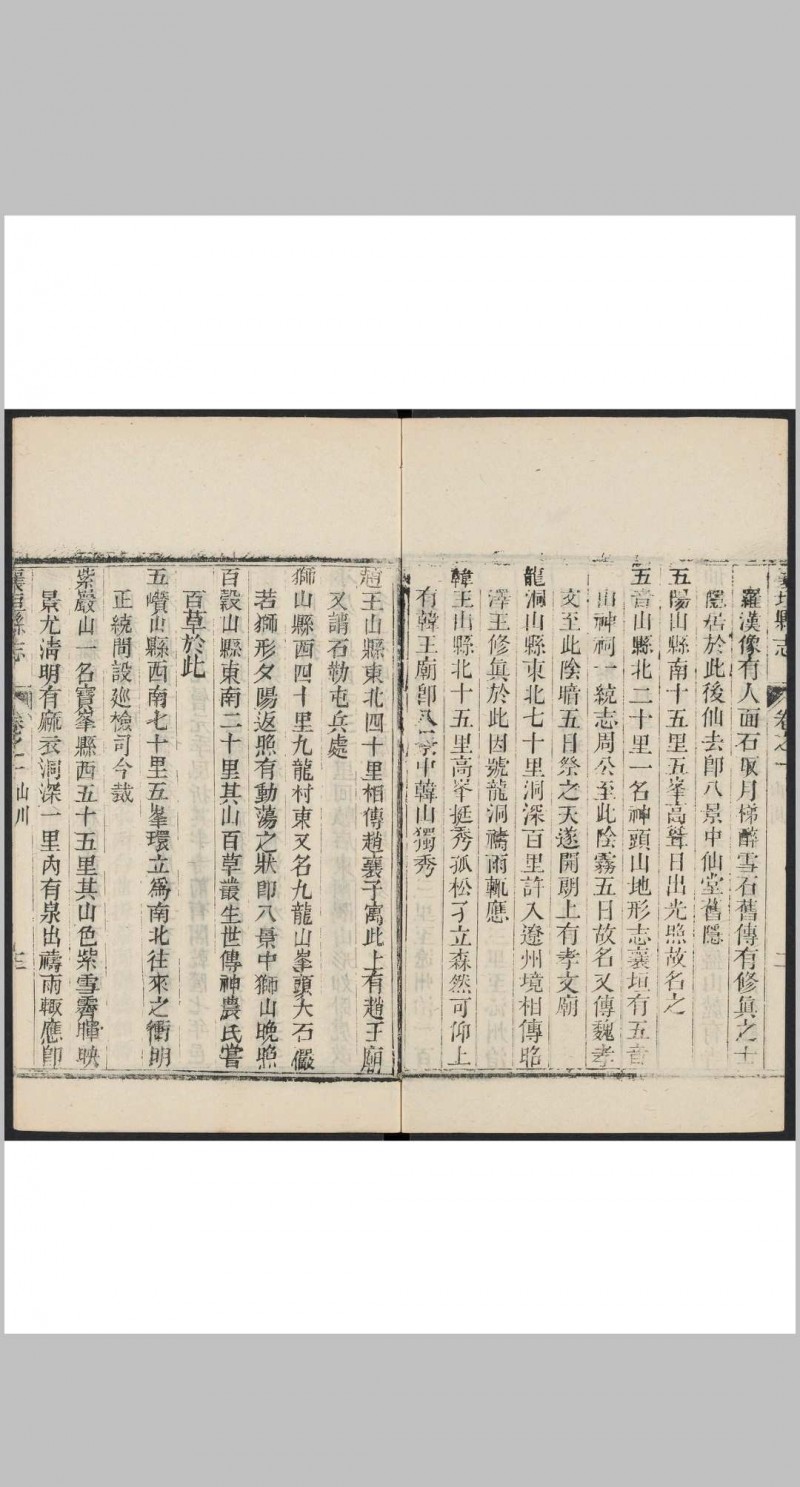 襄垣縣志　卷之一　二
羅漢像有人面石取月梯醉雪石舊傳有修眞之士
隱居於此後仙去卽八景中仙堂舊隱
五陽山縣南十五里五峯高聳日出光照故名之
五音山縣北二十里一名神頭山地形志襄垣有五音
山神祠一統志周公至此陰霧五日故名又傳魏孝
文至此陰暗五日祭之天遂開朝上有孝文廟
龍洞山縣東北七十里洞深百里許入遼州境相傳昭
澤王修眞於此因號龍洞禱雨輒應
韓王山縣北十五里高峯挺秀孤松孑立森然可仰上
有韓王廟卽八景中韓山獨秀
趙王山縣東北四十里相傳趙襄子寓此上有趙王廟
又謂石勒屯兵處
獅山縣西四十里九龍村東又名九龍山峯頭大石儼
若獅形夕陽返照有動蕩之狀卽八景中獅山晚照
百穀山縣東南二十里其山百草叢生世傳神農氏嘗
百草於此
五巑山縣西南七十里五峯環立爲南北往來之衝明
正統間設巡檢司今裁
紫巖山一名寶峯縣西五十五里其山色紫雪霽暉映
景尤淸明有麻衣洞深一里內有泉出禱雨輒應卽
襄垣縣志　卷之一　山川　三